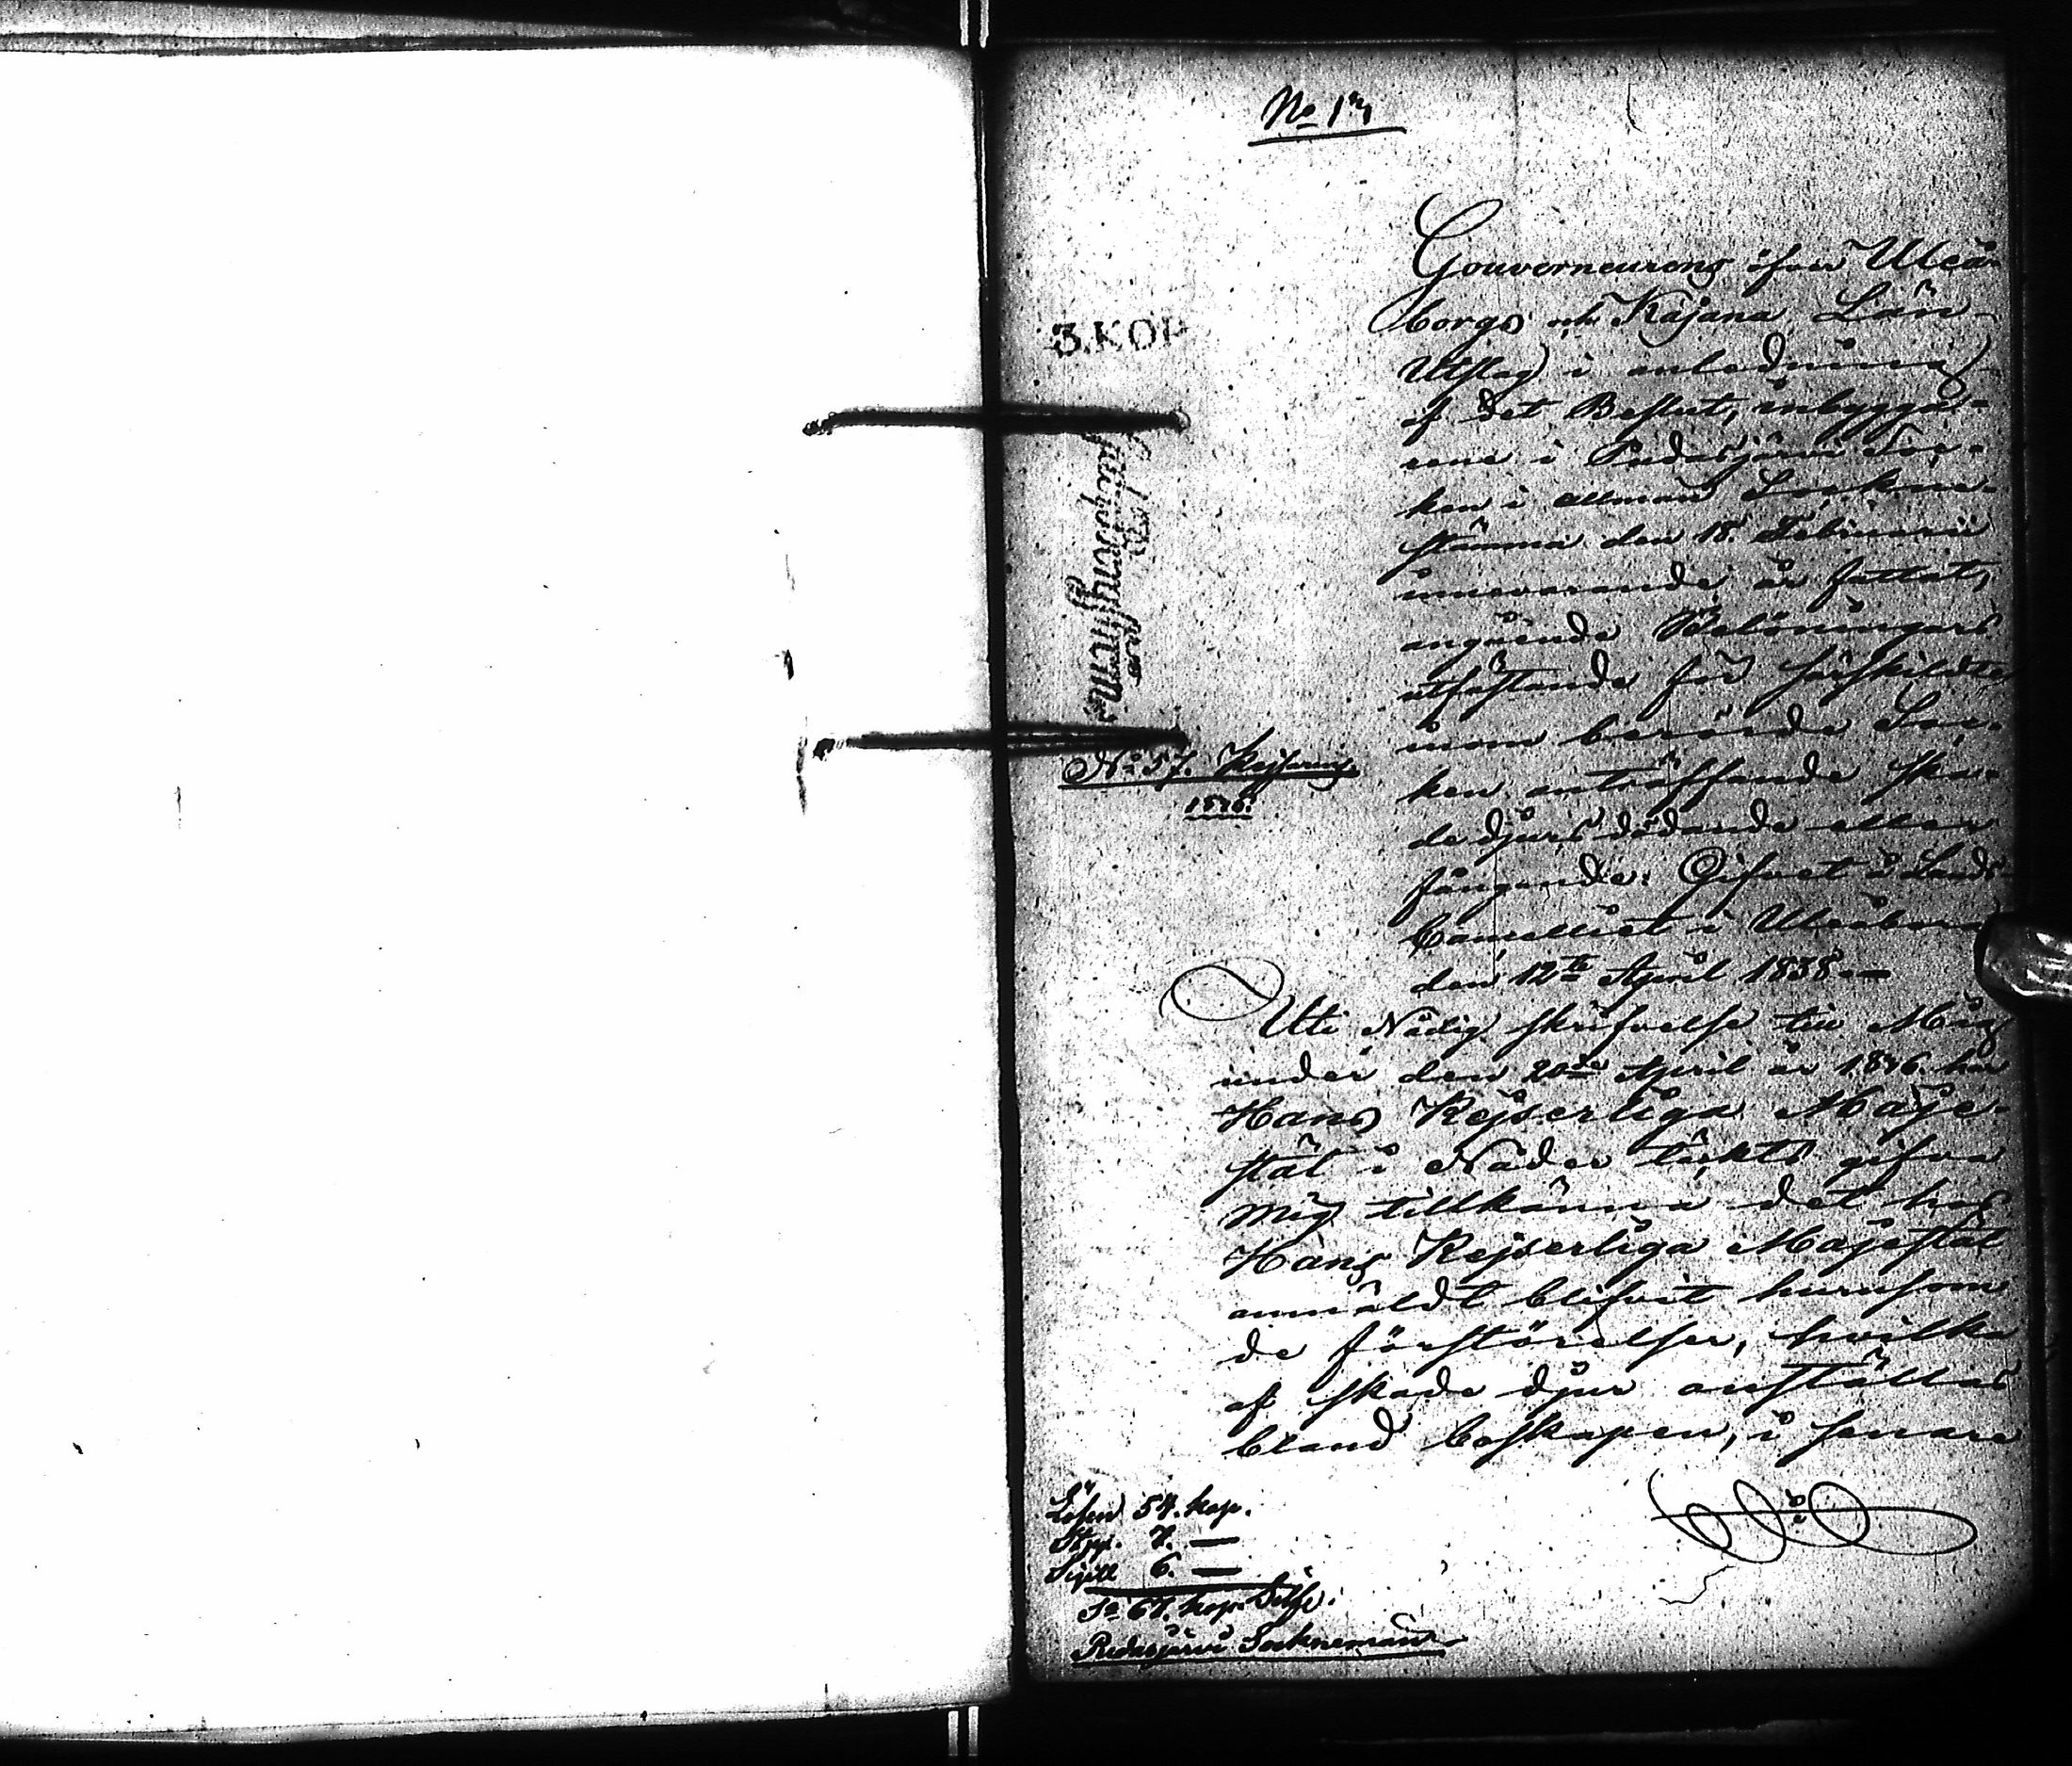 No 1
3. KOP
Gouverneurens öfver Uleå-
borgs och Kajana Län
Utslag i anledning
af det Beslut, inbyggar-
rene i Pudasjärvi Soc-
ken i allmän Sockne-
stämma den 18 Februarii
innevarande år fattat,
angående Belöningars
utfästande för särskildte
inom berörde Soc-
ken anträffande ska-
de djurs dödande eller
fångande: Gifvet å Lands
Cancelliet i Uleåborg
den 12te April 1838.—
No 57.
Uti Nådig skrifvelse till Mig
under den 20de April år 1836 har
Hans Kejserliga Maje-
stät i Nåder täckts gifva
mig tillkänna det hos
Hans Kejserliga Majestät
anmäldt blifvit hurusom
de förstörelser, hvilka
af skade djur anställas
bland boskapen, i senare
Lösen 54. kop.
Stpp. 7. —
Sigill 6. —
Sa 67. kop. Silfr.
Pudasjärvi Socknemän